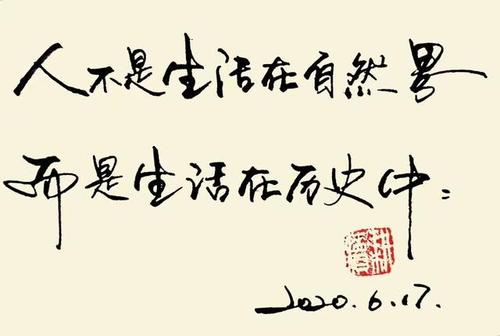 人不是生活在自然界
而是生活在历史中：
2020.6.17.